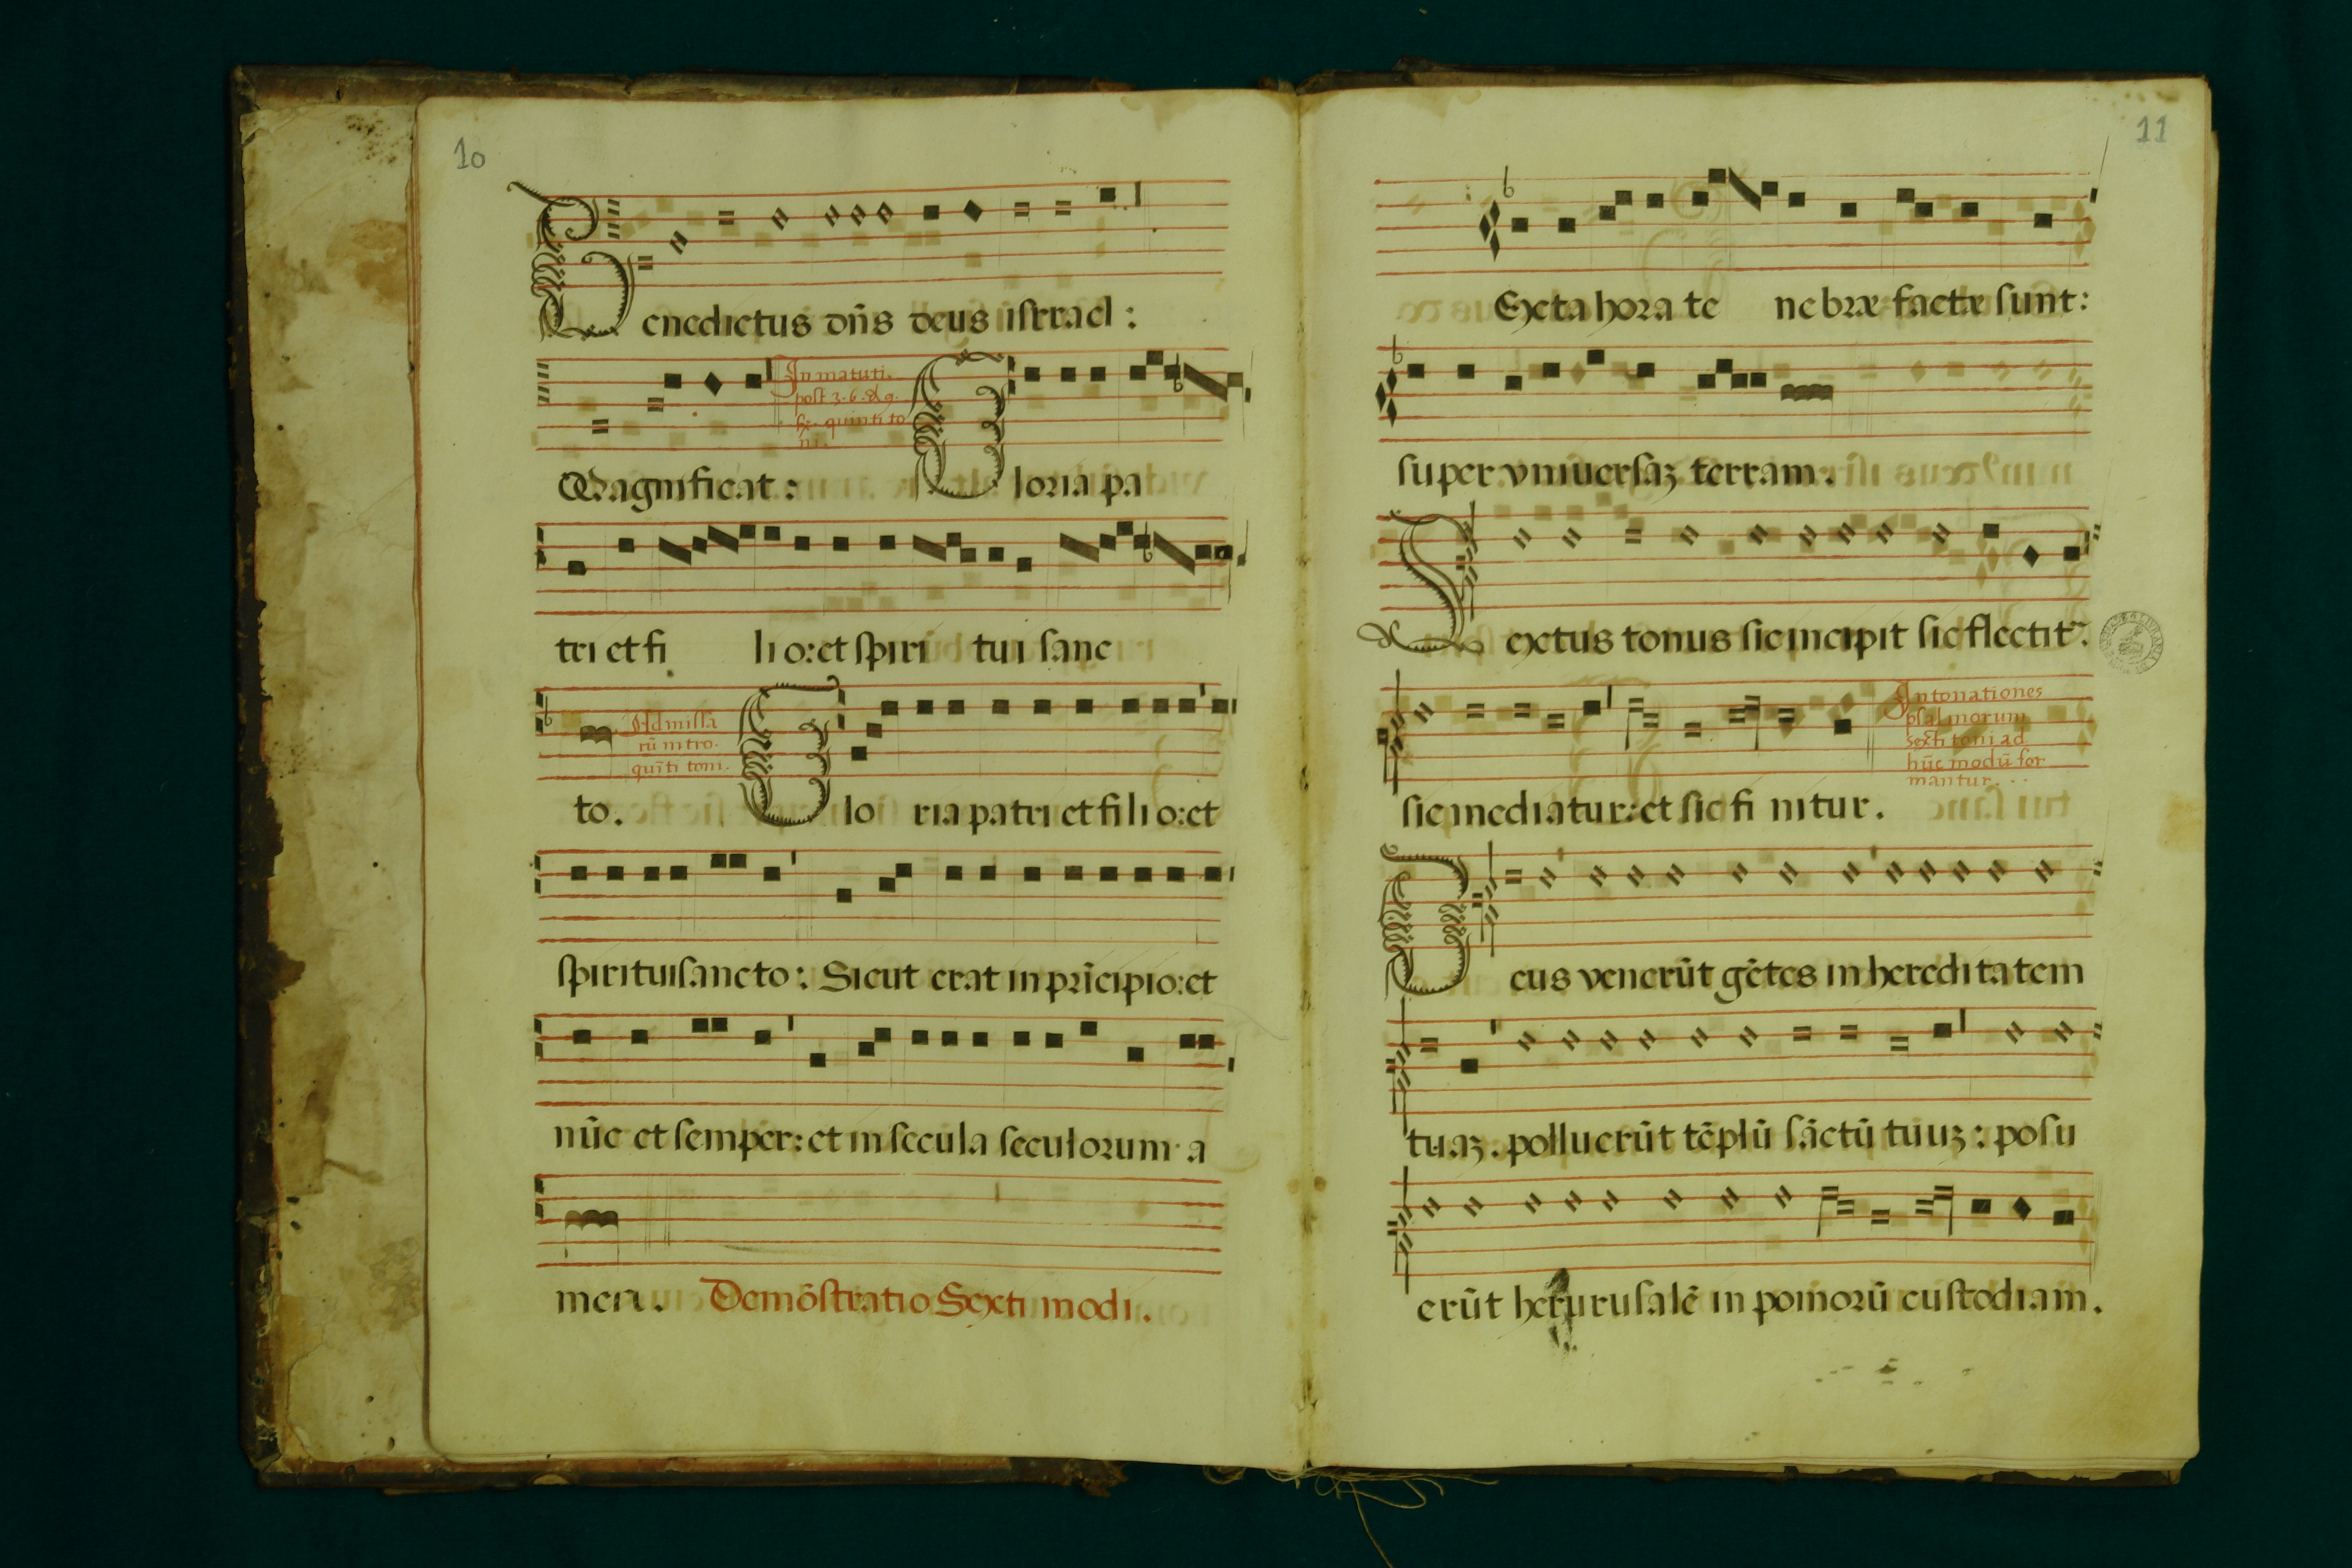 10
Benedictus dñs deus israel :
In matuti.
post 3. 6. & 9.
quinti to
ni.
Magnificat : Gloria pa
tri et fi lio: et spiri tui sanc
Ad missa
rũ intro.
quĩti toni.
to. Glo ria patri et filio: et
spiritui sancto : Sicut erat in prĩcipio: et
nũc et semper: et in secula seculorum a
men. Demõstratio Sexti modi.
11
Exta hora te nebræ factæ sunt :
super vniuersaʒ terram.
Sextus tonus sic incipit sic flectit.
Intonationes
psalmorum
sexti toni ad
hũc modũ for
mantur.
sic mediatur: et sic fi nitur.
Deus venerũt gẽtes in hereditatem
tuaʒ. polluerũt tẽplũ sãctũ tuuʒ : posu
erũt hierusalẽ in pomorũ custodiam.